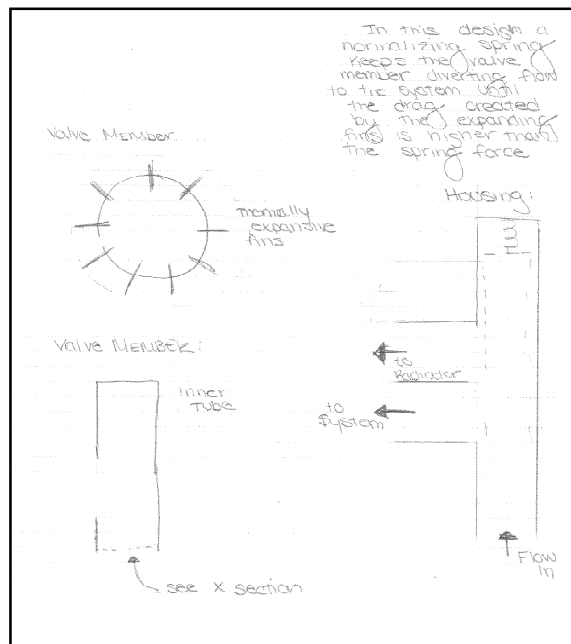 In this design a
normalizing spring
keeps the valve
member diverting flow
to the system until
the drag created
by the expanding
fins is higher than
the spring force
Valve Member
thermally
expansive
fins
Housing:
to
Radiator
to
System
Flow
in
Valve MEMBER:
inner
TUBE
see X section